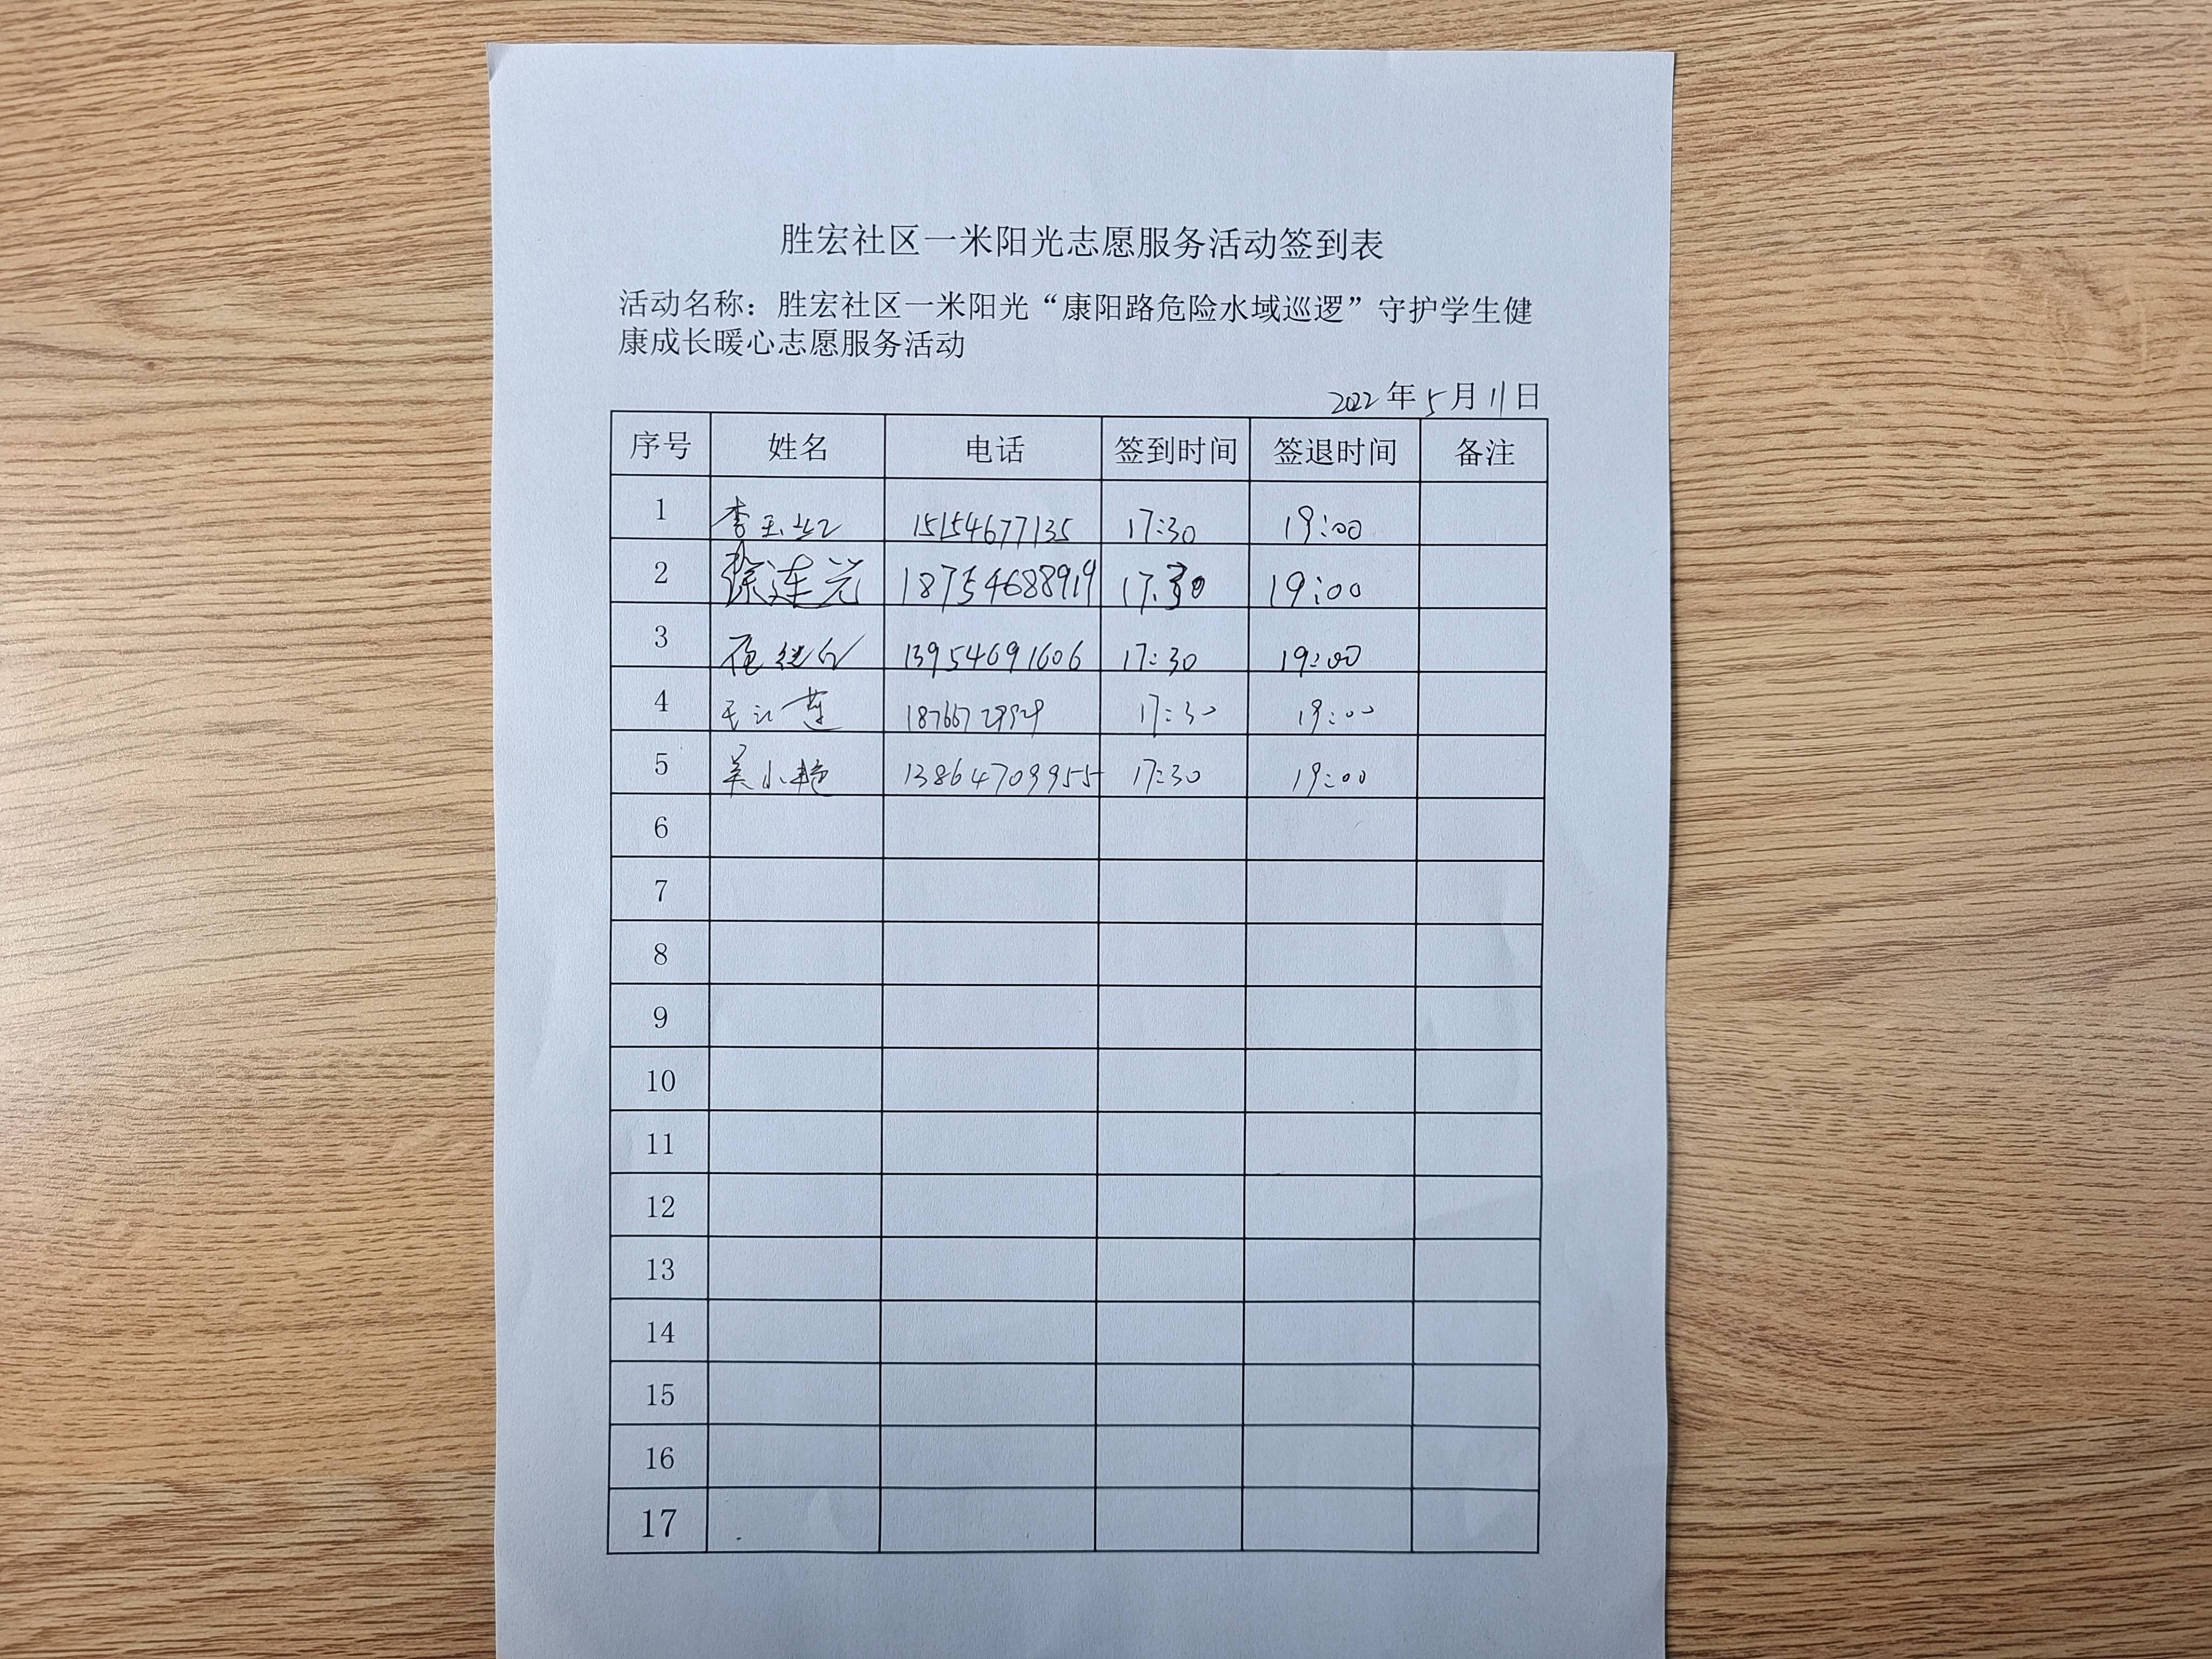 胜宏社区一米阳光志愿服务活动签到表
活动名称：胜宏社区一米阳光“康阳路危险水域巡逻”守护学生健
康成长暖心志愿服务活动
2022年5月11日
序号 姓名 电话 签到时间 签退时间 备注
1 李玉 15154677135 17:30 19:00
2 徐连兴 18754688919 17:30 19:00
3 13954691606 17:30 19:00
4 莲 17:30 19:00
5 吴小艳 13864709955 17:30 19:00
6
7
8
9
10
11
12
13
14
15
16
17